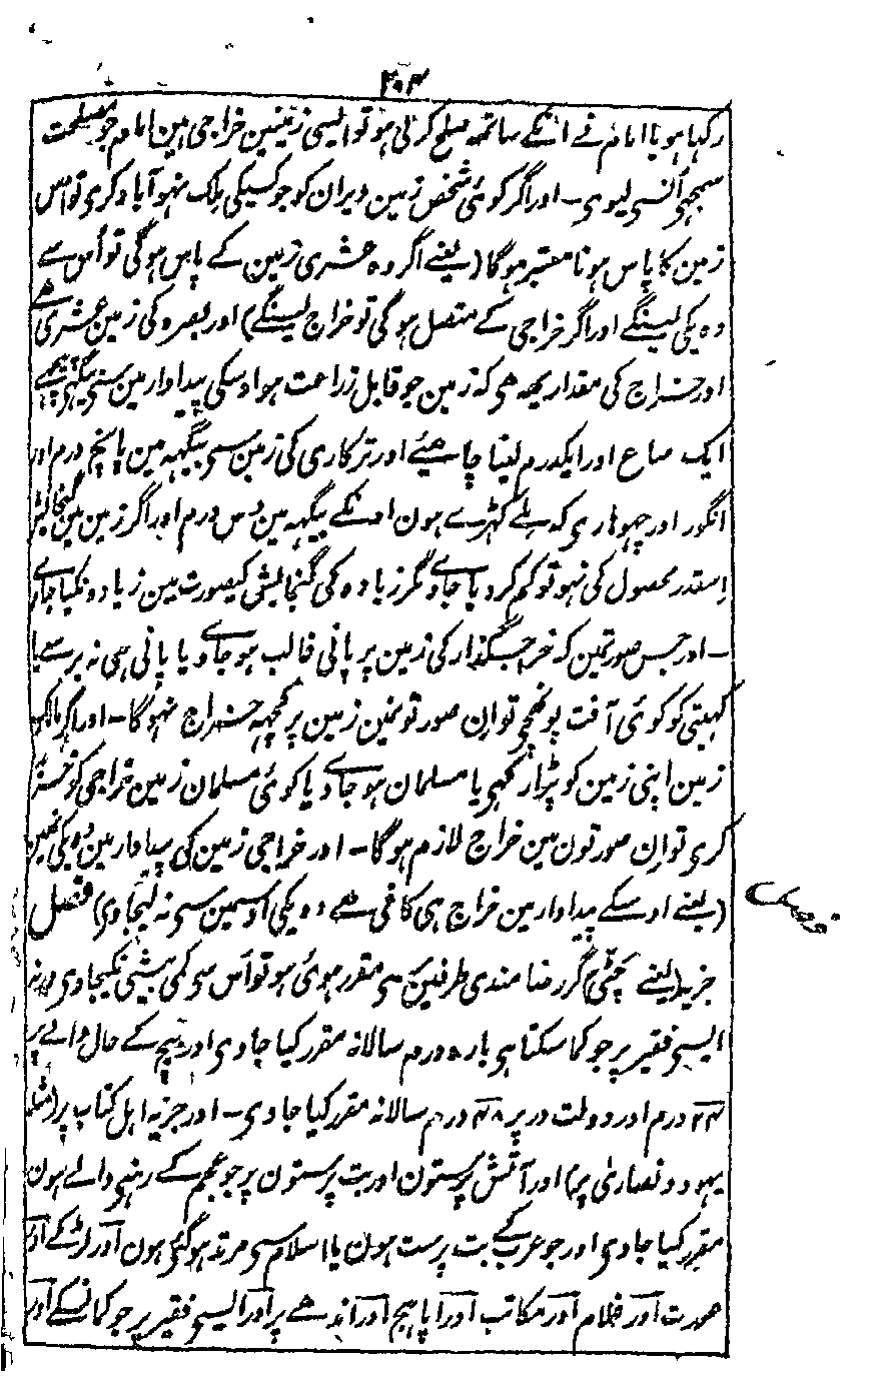 ۲۰۳
رکہا ہو یا امام نے انکے ساتھ صلح کر لی ہو تو ایسی زمینین خراجی ہین امام جو مصلحت
سمجہی اُنسی لیوی ۔ اور اگر کوئی شخص زمین ویران کو جو کسیکی ملک نہو آباد کری تو اس
زمین کا پاس ہونا معتبر ہوگا (یعنے اگر وہ عشری زمین کے پاس ہوگی تو اُس سے
دہ یکی لینگے اور اگر خراجی کے متصل ہوگی تو خراج لینگے) اور بصرہ کی زمین عشری ھے
اور خراج کی مقدار یھہ ھی کہ زمین جو قابل زراعت ہو اوسکی پیداوار مین سی بیگہہ پیچھے
ایک صاع اور ایکدرم لینا چاہیئے اور ترکاری کی زمین سی بیگہہ مین پانچ درم اور
انگور اور چہوہاری کہ ملے کہڑے ہون اونکے بیگہہ مین دس درم اور اگر زمین مین گنجائش
اِسقدر محصول کی نہو تو کم کر دیا جاوے مگر زیادہ کی گنجایش کیصورت مین زیادہ نکیا جاوے
۔ اور جس صورتمین کہ خراجگذار کی زمین پر پانی غالب ہو جاوے یا پانی ہی نہ برسے یا
کہیتی کو کوئی آفت پونھچی تو ان صورتونمین زمین پر کچہہ خراج نہوگا ۔ اور اگر مالک
زمین اپنی زمین کو پڑا رکہی یا مسلمان ہو جاوے یا کوئی مسلمان زمین خراجی کو خرید
کری تو اِن صورتون مین خراج لازم ہوگا ۔ اور خراجی زمین کی پیداوار مین دہ یکی نہین
(یعنے اوسکے پیداوار مین خراج ہی کافی ھے دہ یکی اوسمین سی نہ لیجاوی) فصل
فصل
جزیہ (یعنے چٹی) گر رضامندی طرفین سی مقرر ہوئی ہو تو اُس سی کمی بیشی نکیجاوی ورنہ
ایسی فقیر پر جو کما سکتا ہی بارہ درم سالانہ مقرر کیا جاوی اور بیچ کے حال والے پر
۲۴ درم اور دولت ور پر ۴۸ درم سالانہ مقرر کیا جاوی ۔ اور جزیہ اہل کتاب پر (مثلاً
یہود و نصاریٰ پر) اور آتش پرستون اور بت پرستون پر جو عجم کے رہنی والے ہون
مقرر کیا جاوی اور جو عرب کے بت پرست ہون یا اسلام سی مرتد ہو گئی ہون اور لڑکے اور
عورت اور غلام اور مکاتب اور اپاہج اور اندھے پر اور ایسی فقیر پر جو کمانسکے اور